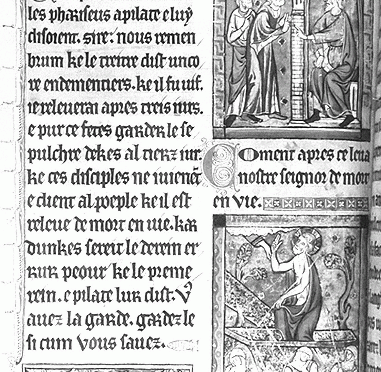 les phariseus a pilate e luy
disoient. sire. nous remen
brum ke le treitre dist unco
re en dementiers. ke il fu uif.
ie releuerai apres treis iurs.
e pur ce feres garder le se
pulchre dekes al tierz iur.
ke ces disciples ne uienent
e dient al poeple ke il est
releue de mort en uie. kar
dunkes sereit le derein er
rur peour ke le preme
rein. e pilate lur dist. V9
auez la garde. gardez le
si cum vous sauez.
Coment apres ce leua
nostre seignor de mort
en vie.